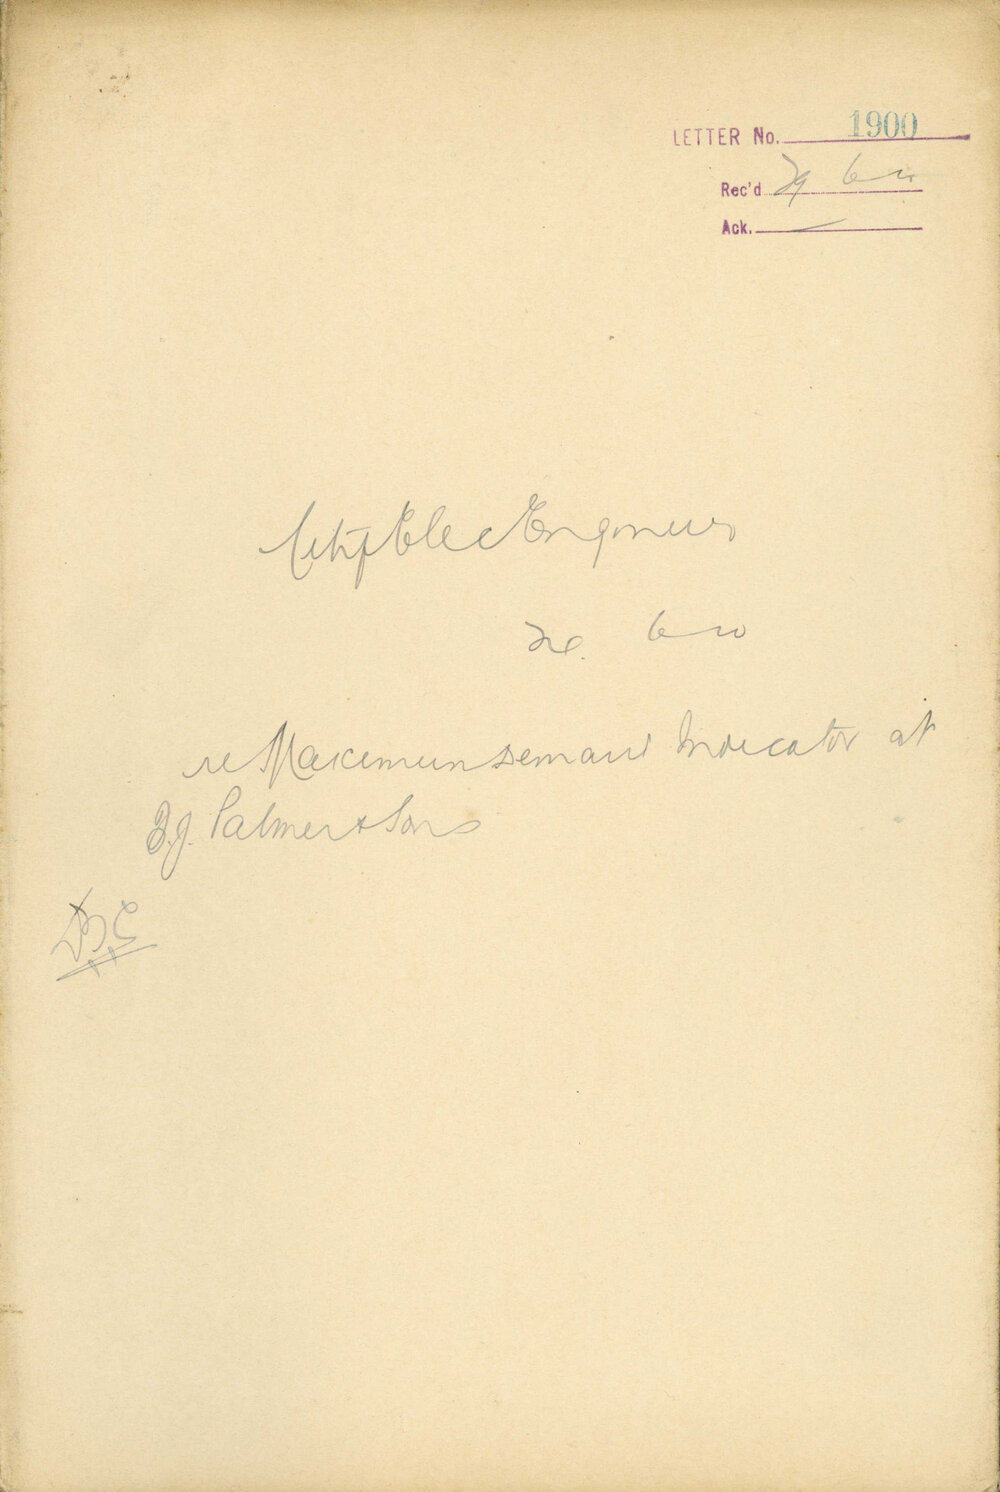 LETTER No. 1900
Rec'd 29
Ack.
City Elec Engineer
re Maximum Demand Indicator at
Palmer & Sons